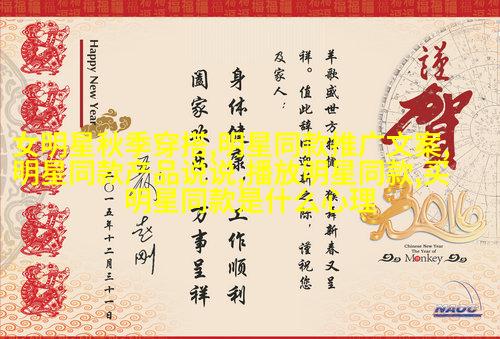 女明星秋季穿搭,明星同款推广文案,
明星同款产品说说,播放明星同款,买
明星同款是什么心理
謹
賀
2016
Chinese New Year
The Year of
Monkey
NAOC
羊歌盛世方
舞新春又呈
祥。值此辞旧迎新之际，谨祝您
及家人：
身体健康 工作顺利
阖家欢乐 万事呈祥
二〇一五年十二月三十一日
Happy New Year